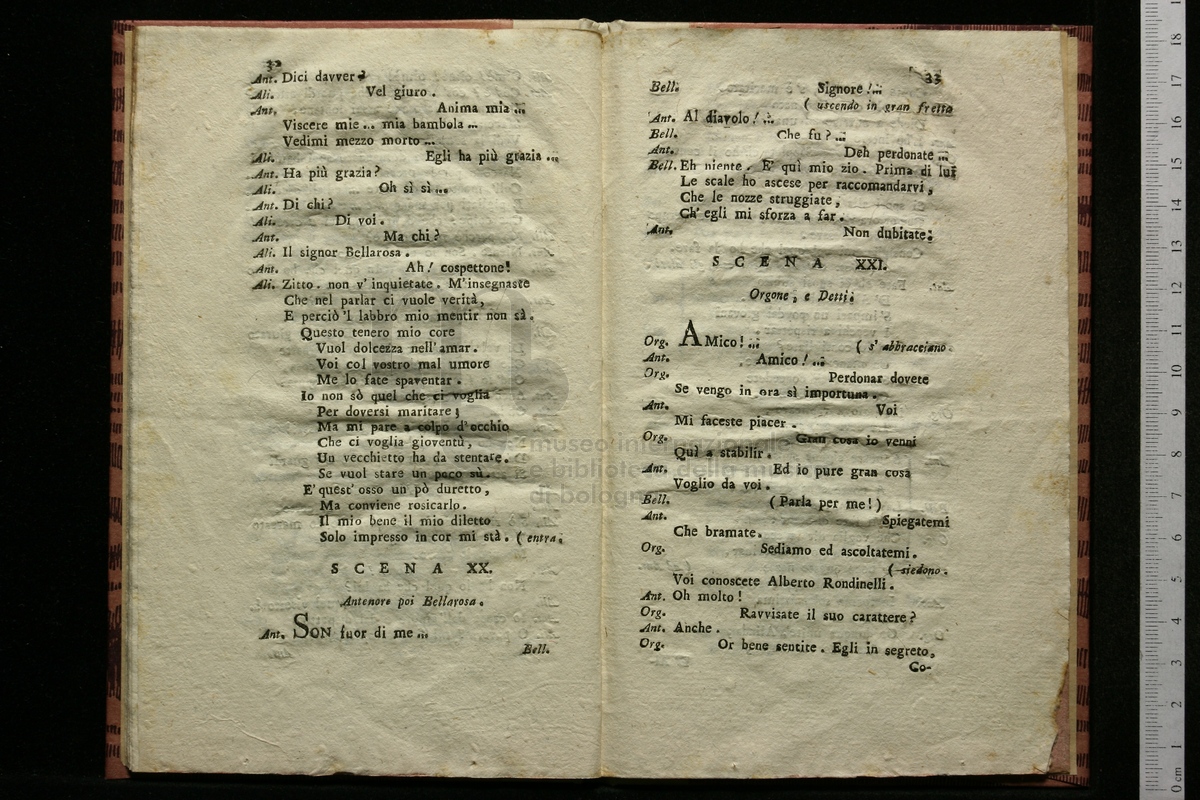 32
Ant. Dici davver?
Ali. Vel giuro.
Ant. Anima mia...
Viscere mie... mia bambola...
Vedimi mezzo morto...
Ali. Egli ha più grazia...
Ant. Ha più grazia?
Ali. Oh sì sì...
Ant. Di chi?
Ali. Di voi.
Ant. Ma chi?
Ali. Il signor Bellarosa.
Ant. Ah! cospettone!
Ali. Zitto. non v'inquietate. M'insegnaste
Che nel parlar ci vuole verità,
E perciò 'l labbro mio mentir non sà.
Questo tenero mio core
Vuol dolcezza nell'amar.
Voi col vostro mal umore
Me lo fate spaventar.
Io non sò quel che ci voglia
Per doversi maritare;
Ma mi pare a colpo d'occhio
Che ci voglia gioventù,
Un vecchietto ha da stentare.
Se vuol stare un poco sù.
E' quest' osso un pò duretto,
Ma conviene rosicarlo.
Il mio bene il mio diletto
Solo impresso in cor mi stà. (entra.
SCENA XX.
Antenore poi Bellarosa.
Ant. SON fuor di me...
Bell.
33
Bell. Signore!...
(uscendo in gran fretta
Ant. Al diavolo!...
Bell. Che fu?...
Ant. Deh perdonate...
Bell. Eh niente. E' quì mio zio. Prima di lui
Le scale ho ascese per raccomandarvi,
Che le nozze struggiate,
Ch'egli mi sforza a far.
Ant. Non dubitate:
SCENA XXI.
Orgone, e Detti.
Org. AMico!... (s'abbracciano.
Ant. Amico!...
Org. Perdonar dovete
Se vengo in ora sì importuna.
Ant. Voi
Mi faceste piacer.
Org. Gran cosa io venni
Quì a stabilir.
Ant. Ed io pure gran cosa
Voglio da voi.
Bell. (Parla per me!)
Ant. Spiegatemi
Che bramate.
Org. Sediamo ed ascoltatemi.
(siedono.
Voi conoscete Alberto Rondinelli.
Ant. Oh molto!
Org. Ravvisate il suo carattere?
Ant. Anche.
Org. Or bene sentite. Egli in segreto,
Co-
museo internazionale
e biblioteca della musica
di bologna
0 cm 1 2 3 4 5 6 7 8 9 10 11 12 13 14 15 16 17 18